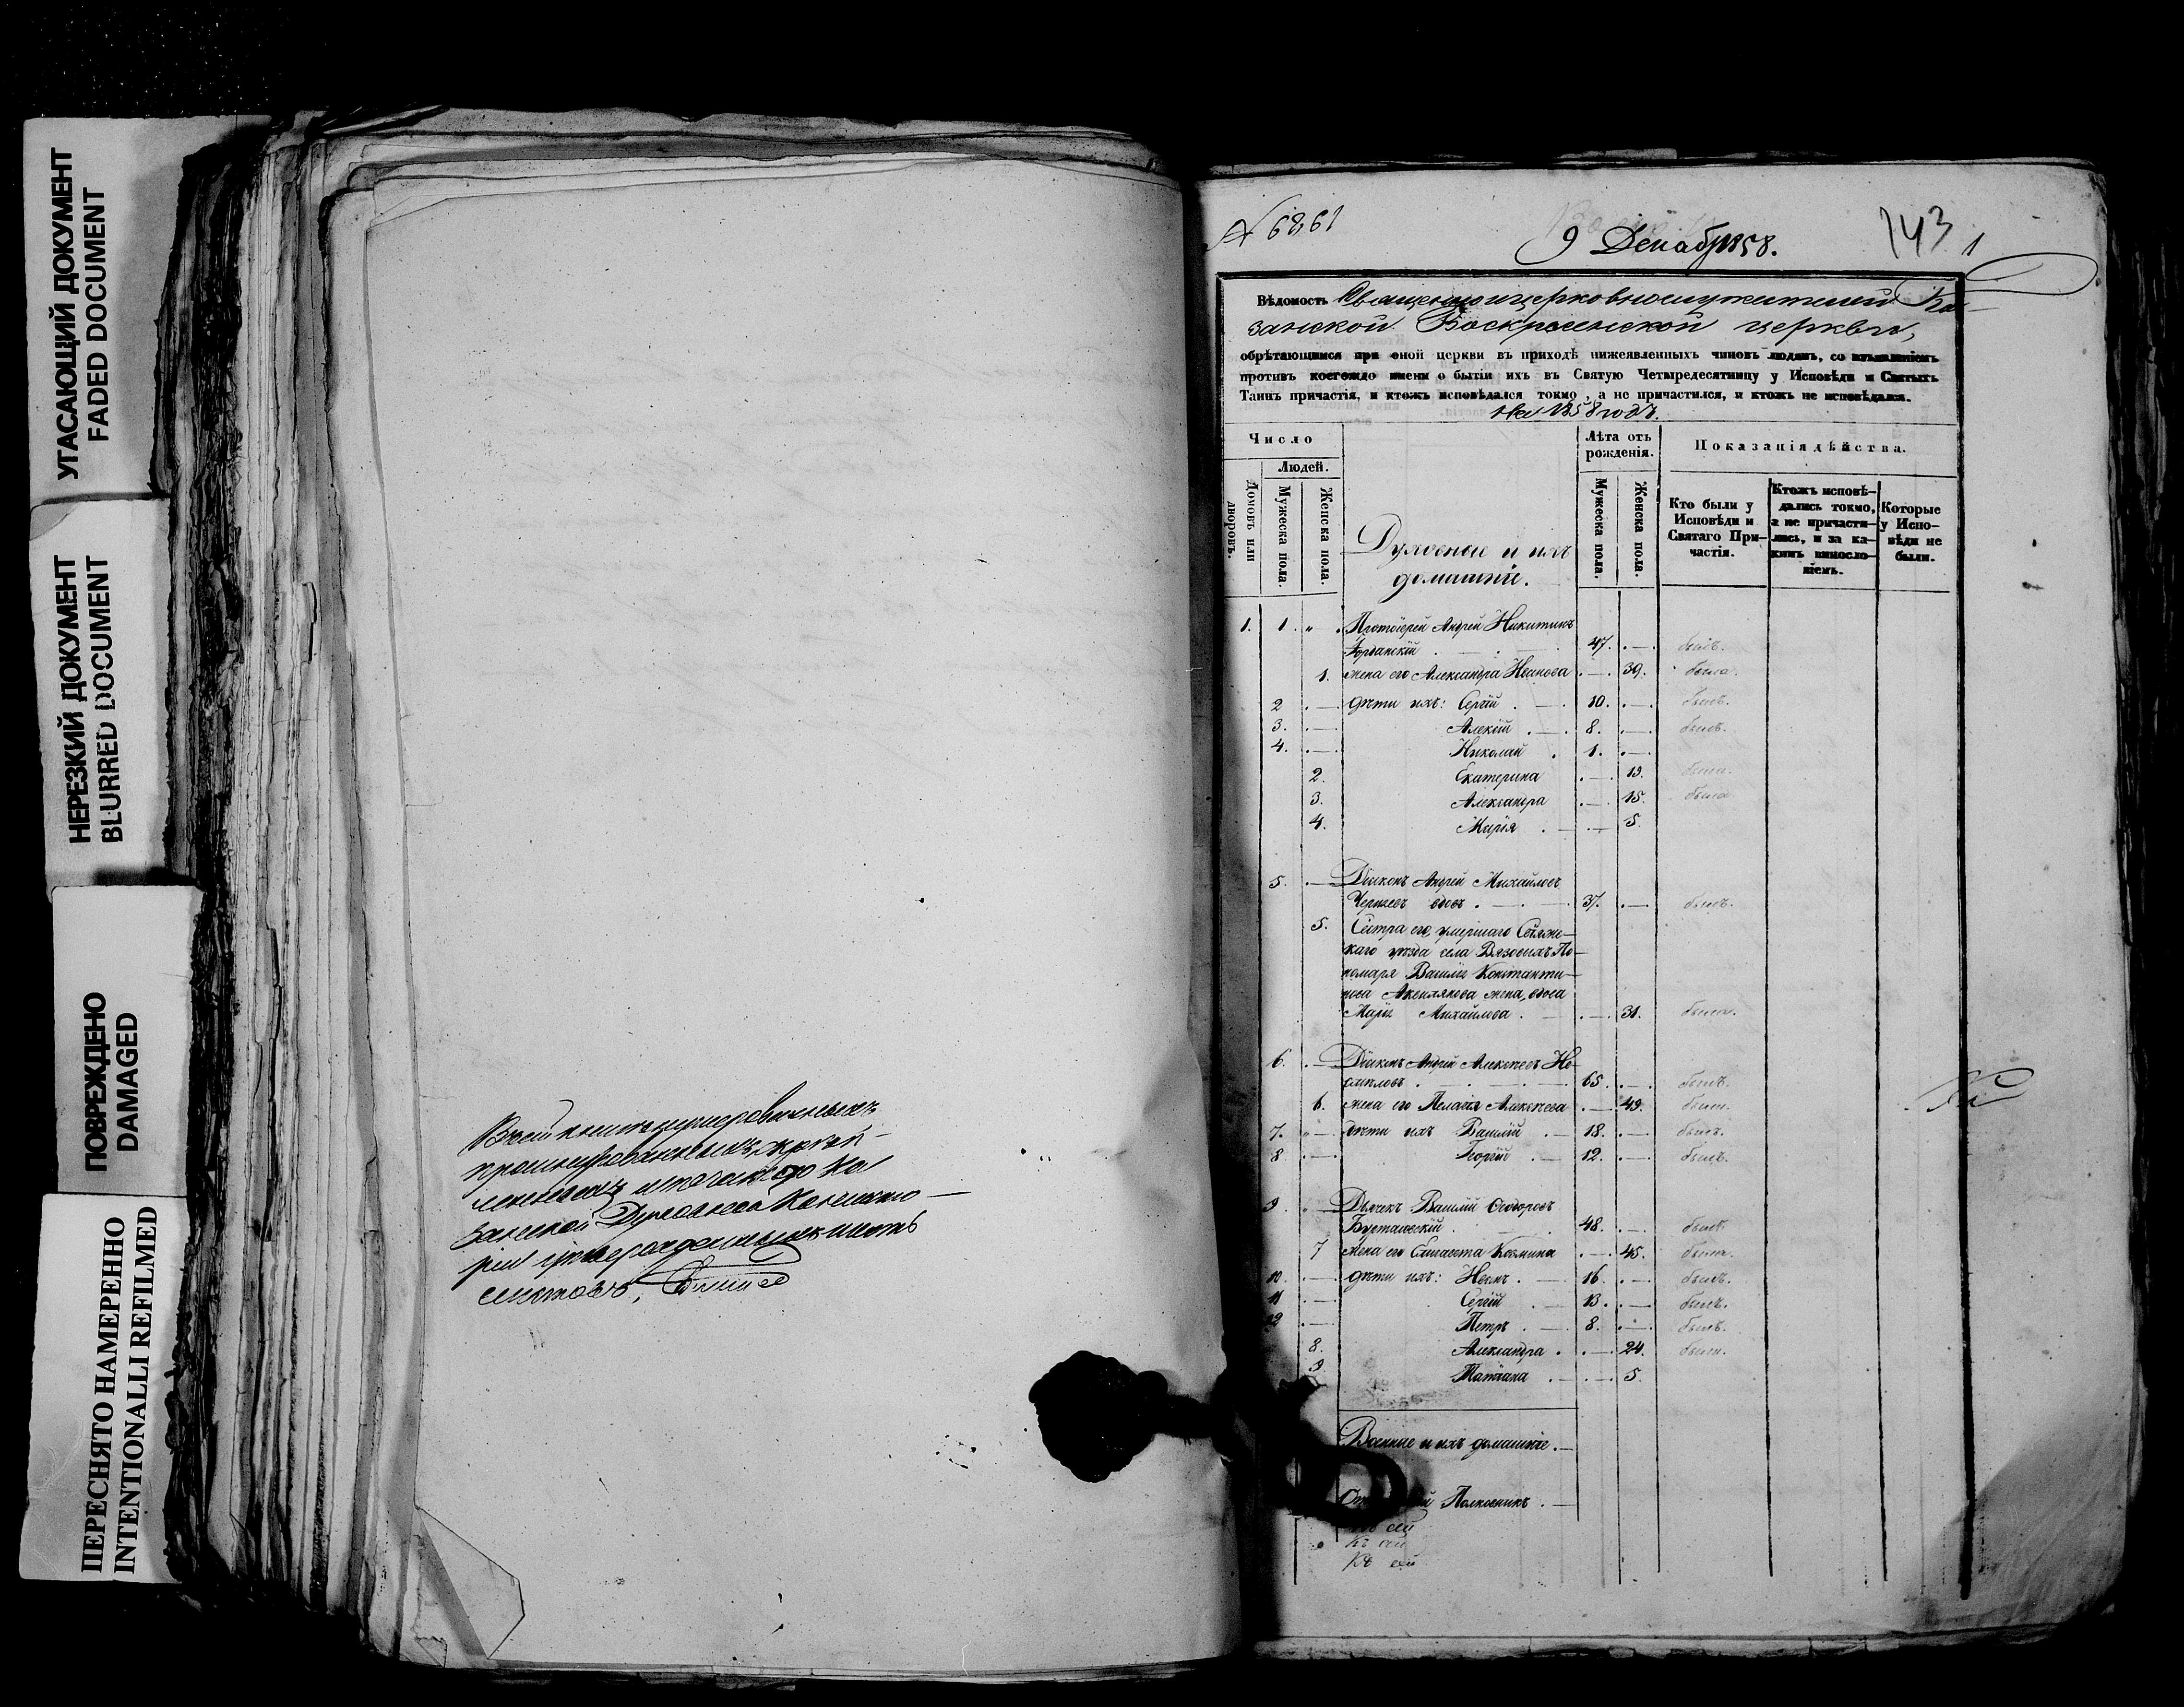 УГАСАЮЩИЙ ДОКУМЕНТ
FADED DOCUMENT
НЕРЕЗКИЙ ДОКУМЕНТ
BLURRED DOCUMENT
ПОВРЕЖДЕНО
DAMAGED
ПЕРЕСНЯТО НАМЕРЕННО
INTENTIONALLI REFILMED
листовъ
№ 6861
9 Декабря 1858.
143
1
Вѣдомость Священноицерковнослужителей Ка-
занской Воскресенской церкви,
обрѣтающимся при оной церкви въ приходѣ нижеявленныхъ чиновъ людямъ, со изъявленіемъ
противъ коегождо имени о бытіи ихъ въ Святую Четыредесятницу у Исповѣди и Святыхъ
Таинъ причастія, и ктожъ исповѣдался токмо, а не причастился, и ктожъ не исповѣдался.
На 1858 годъ.
Число
Людей.
Домовъ или дворовъ.
Мужеска пола.
Женска пола.
Духовные и ихъ
домашніе.
Лѣта отъ
рожденія.
Мужеска пола.
Женска пола.
Показанія дѣйства.
Кто были у
Исповѣди и
Святаго При-
частія.
Ктожъ исповѣ-
дались токмо,
а не причасти-
лись, и за ка-
кимъ винословіемъ.
Которые
у Испо-
вѣди не
были.
1. 1. " Протоіерей Андрей Никитинъ
Іорданскій 47. былъ.
1. жена его Александра Иванова 39. была.
2 дѣти ихъ: Сергѣй 10. былъ.
3. Алексій 8. былъ.
4. Николай 1.
2. Екатерина 19. была.
3. Александра 15. была
4. Марія 5.
5. Діаконъ Андрей Михайловъ
вдовъ 37. былъ.
5. Сестра его, умершаго Свіяж-
каго уѣзда села Вязовыхъ По-
номаря Василія Константи-
нова жена, вдова
Марія Михайлова 31. была.
6. Діаконъ Андрей Алексѣевъ Не-
смѣловъ 65. былъ.
6. жена его Пелагія Алексѣева 49. была.
7. дѣти ихъ Василій 18. былъ.
8 Георгій 12. былъ.
9 Дьячекъ Василій Ѳедоровъ
48. былъ.
7 жена его Елисавета Козмина 45. была.
10. дѣти ихъ: Иванъ 16. былъ.
11 Сергѣй 13. былъ.
12 Петръ 8. былъ.
8. Александра 24. была.
9 Татіана 5.
Военные и ихъ домашніе.
Полковникъ.